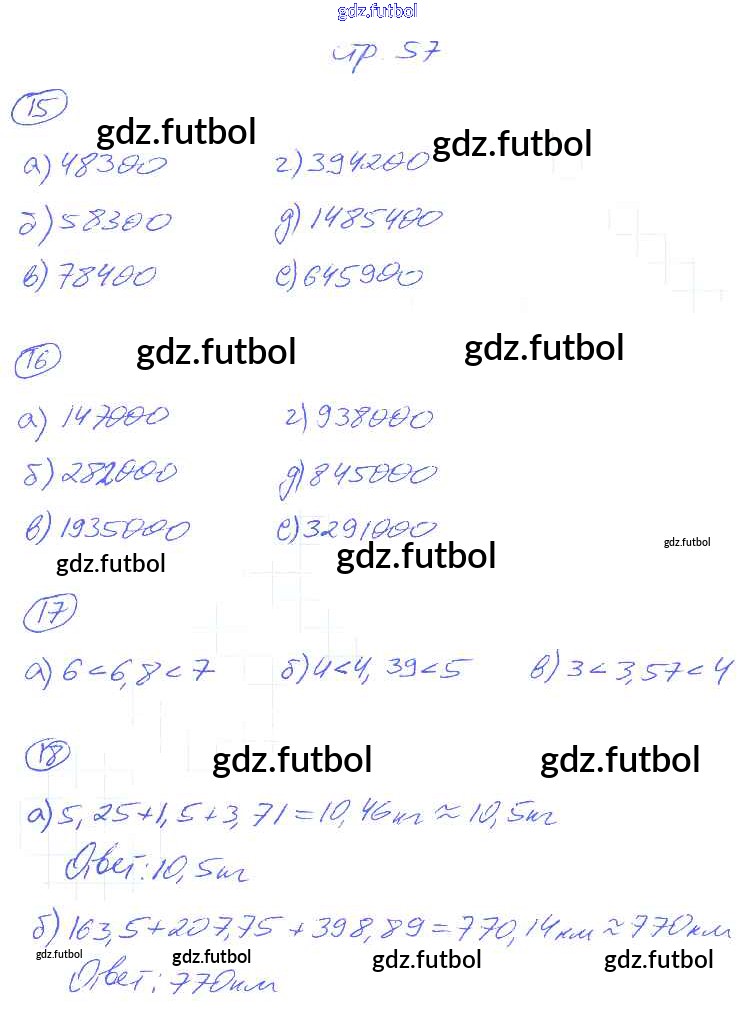 gdz.futbol
стр. 57
15
gdz.futbol gdz.futbol
а) 48300 г) 394200
б) 58300 д) 1485400
в) 78400 е) 645900
16 gdz.futbol gdz.futbol
а) 147000 г) 938000
б) 282000 д) 845000
в) 1935000 е) 3291000
gdz.futbol gdz.futbol gdz.futbol
17
а) 6 < 6,8 < 7 б) 4 < 4,39 < 5 в) 3 < 3,57 < 4
18 gdz.futbol gdz.futbol
а) 5,25 + 1,5 + 3,71 = 10,46 кг ≈ 10,5 кг
Ответ: 10,5 кг
б) 163,5 + 207,75 + 398,89 = 770,14 км ≈ 770 км
gdz.futbol gdz.futbol gdz.futbol gdz.futbol
Ответ: 770 км